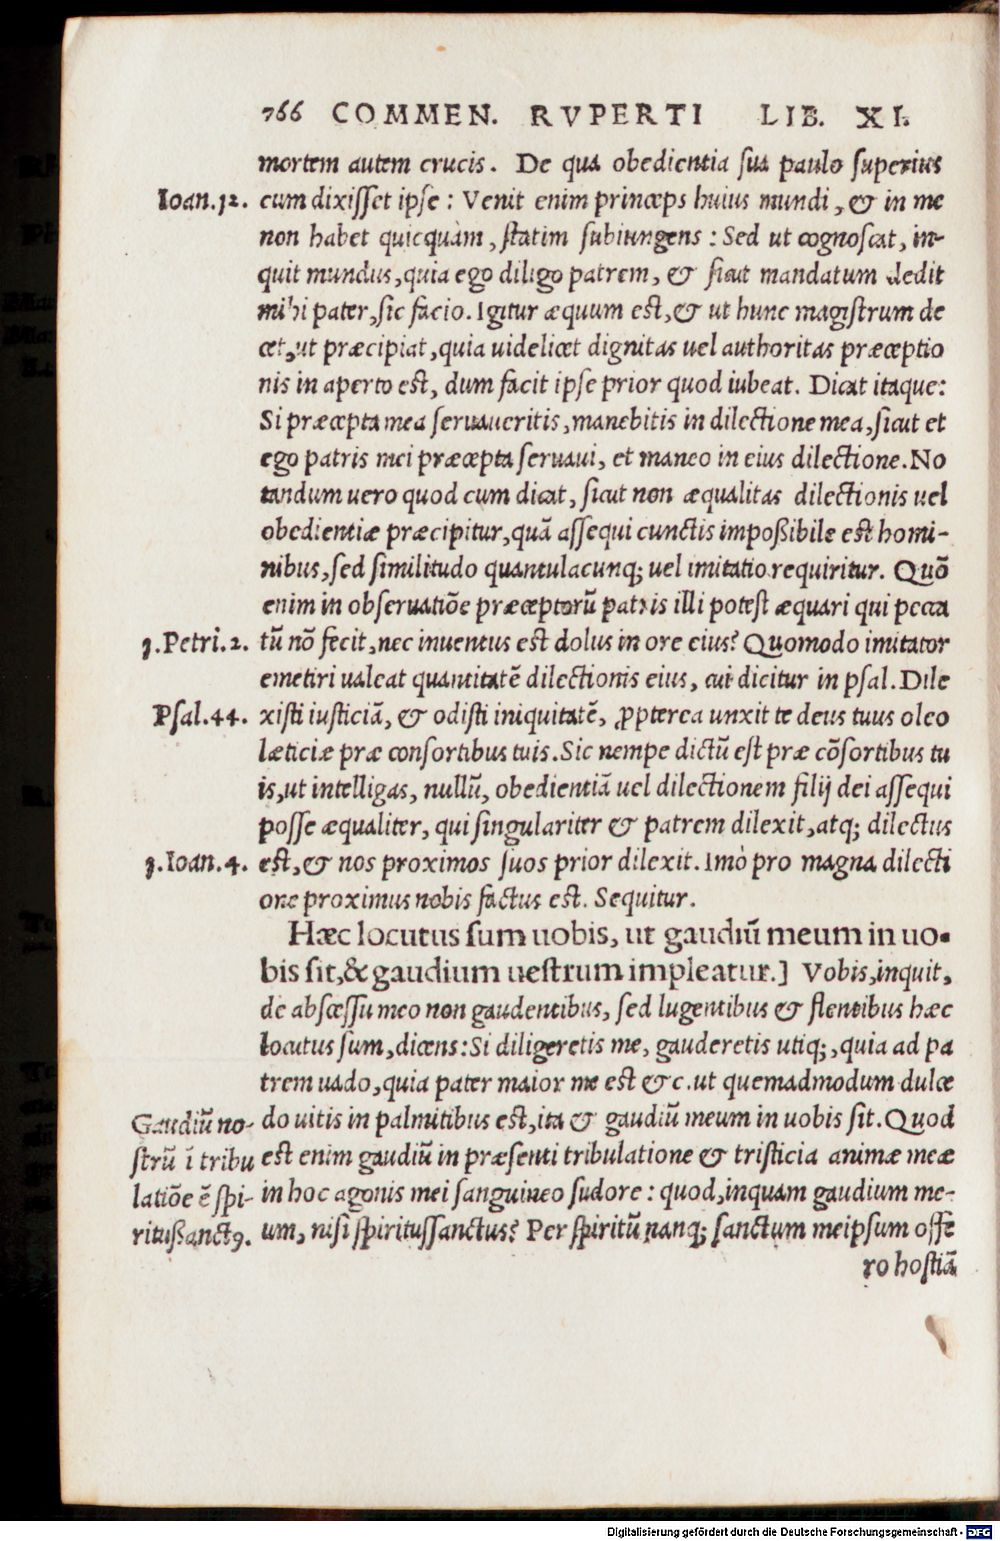 766 COMMEN. RVPERTI LIB. XI.
mortem autem crucis. De qua obedientia sua paulo superius
Ioan.12. cum dixisset ipse: Venit enim princeps huius mundi, & in me
non habet quicquàm, statim subiungens: Sed ut cognoscat, in-
quit mundus, quia ego diligo patrem, & sicut mandatum dedit
mihi pater, sic facio. Igitur æquum est, & ut hunc magistrum de
cet, ut præcipiat, quia uidelicet dignitas uel authoritas præceptio
nis in aperto est, dum facit ipse prior quod iubeat. Dicat itaque:
Si præcepta mea seruaueritis, manebitis in dilectione mea, sicut et
ego patris mei præcepta seruaui, et maneo in eius dilectione. No
tandum uero quod cum dicat, sicut non æqualitas dilectionis uel
obedientiæ præcipitur, quã assequi cunctis impoßibile est homi-
nibus, sed similitudo quantulacunq; uel imitatio requiritur. Quõ
enim in obseruatiõe præceptorũ patris illi potest æquari qui pecca
1.Petri.2. tũ nõ fecit, nec inuentus est dolus in ore eius? Quomodo imitator
emetiri ualeat quantitatẽ dilectionis eius, cui dicitur in psal. Dile
Psal.44. xisti iusticiã, & odisti iniquitatẽ, ꝓpterea unxit te deus tuus oleo
læticiæ præ consortibus tuis. Sic nempe dictũ est præ cõsortibus tu
is, ut intelligas, nullũ, obedientiã uel dilectionem filij dei assequi
posse æqualiter, qui singulariter & patrem dilexit, atq; dilectus
1.Ioan.4. est, & nos proximos suos prior dilexit. Imò pro magna dilecti
one proximus nobis factus est. Sequitur.
Hæc locutus sum uobis, ut gaudiũ meum in uo-
bis sit, & gaudium uestrum impleatur.] Vobis, inquit,
de abscessu meo non gaudentibus, sed lugentibus & flentibus hæc
locutus sum, dicens: Si diligeretis me, gauderetis utiq;, quia ad pa
trem uado, quia pater maior me est &c. ut quemadmodum dulce
Gaudiũ no- do uitis in palmitibus est, ita & gaudiũ meum in uobis sit. Quod
strũ ĩ tribu est enim gaudiũ in præsenti tribulatione & tristicia animæ meæ
latiõe ẽ spi- in hoc agonis mei sanguineo sudore: quod, inquam gaudium me-
ritußanctꝰ. um, nisi spiritussanctus? Per spiritũ nanq; sanctum meipsum offe
ro hostiã
Digitalisierung gefördert durch die Deutsche Forschungsgemeinschaft - DFG